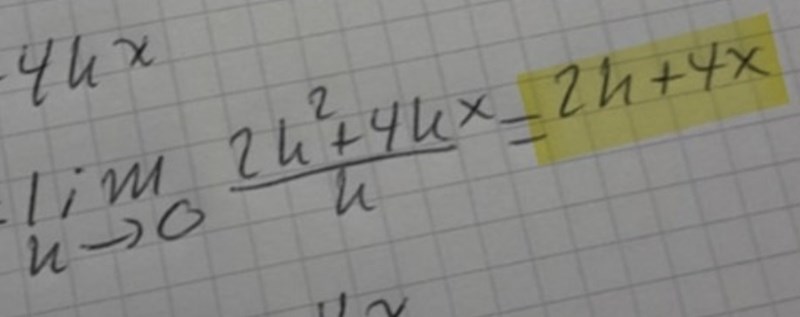 4hx
lim h→0 (2h²+4hx)/h = 2h+4x